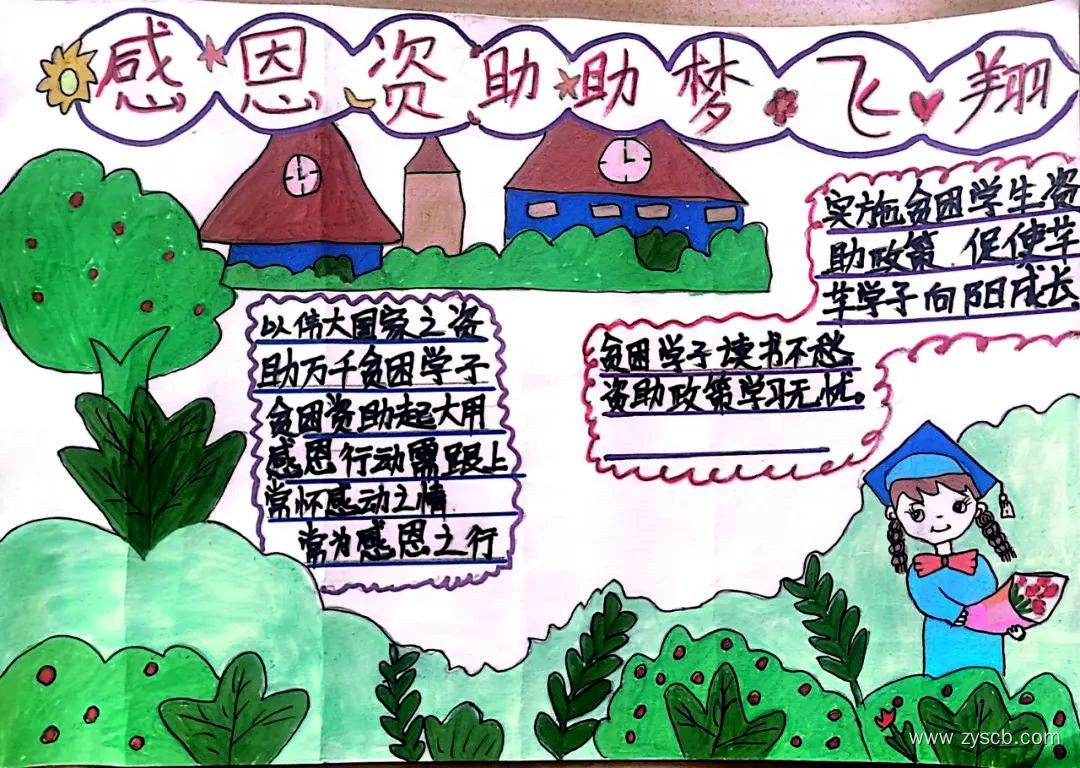 感恩资助助梦飞翔
以伟大国家之资
助万千贫困学子
贫困资助起大用
感恩行动需跟上
常怀感动之情
常为感恩之行
实施贫困学生资
助政策 促使莘
莘学子向阳成长
贫困学子读书不愁
资助政策学习无忧。
www.zyscb.com